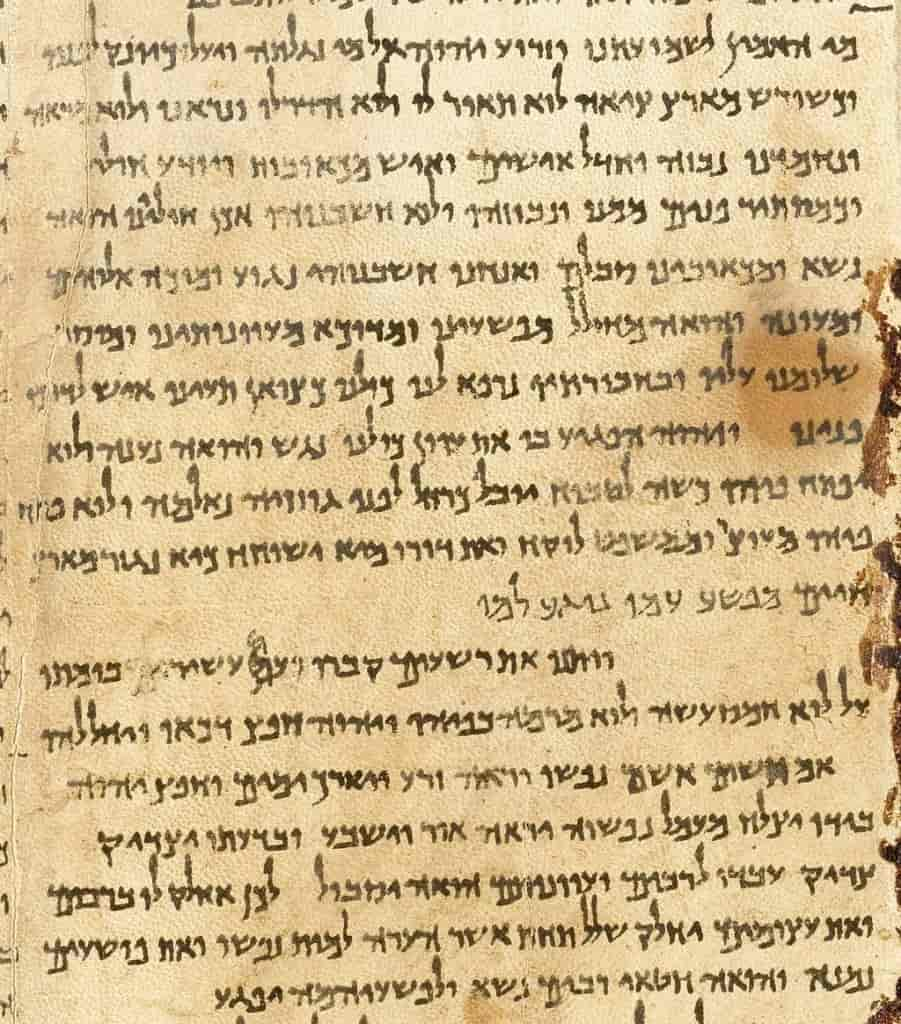 מי האמין לשמועתנו וזרוע יהוה אל מי נגלתה ויעל כיונק לפניו
וכשורש מארץ ציאה לוא תואר לו ולוא הדר לו ונראנו ולוא מראה
ונחמדנו נבזה וחדל אישים ואיש מכאובות ויודע חולי
וכמסתר פנים ממנו ונבוזהו ולוא חשבנוהו אכן חוליינו הואה
נשא ומכאובינו סבלם ואנחנו חשבנוהו נגוע ומוכה אלוהים
ומעונה והואה מחולל מפשעינו ומדוכא מעוונותינו ומוסר
שלומנו עליו ובחבורתיו נרפא לנו כולנו כצואן תעינו איש לדרכו
פנינו ויהוה הפגיע בו את עוון כולנו נגש והואה נענה ולוא
יפתח פיהו כשה לטבוח יובל כרחל לפני גוזזיה נאלמה ולוא פתח
פיהו מעוצר וממשפט לוקח ואת דורו מיא ישוחח כיא נגזר מארץ
חיים מפשע עמו נוגע למו
ויתנו את רשעים קברו ועם עשיר בומתו
על לוא חמס עשה ולוא מרמה בפיהו ויהוה חפץ דכאו ויחללהו
אם תשים אשם נפשו יראה זרע ויאריך ימים וחפץ יהוה
בידו יצלח מעמל נפשוה יראה אור וישבע ובדעתו יצדיק
צדיק עבדו לרבים ועוונותם הואה יסבול לכן אחלק לו ברבים
ואת עצומים יחלק שלל תחת אשר הערה למות נפשו ואת פושעים
נמנה והואה חטאי רבים נשא ולפשעיהמה יפגע